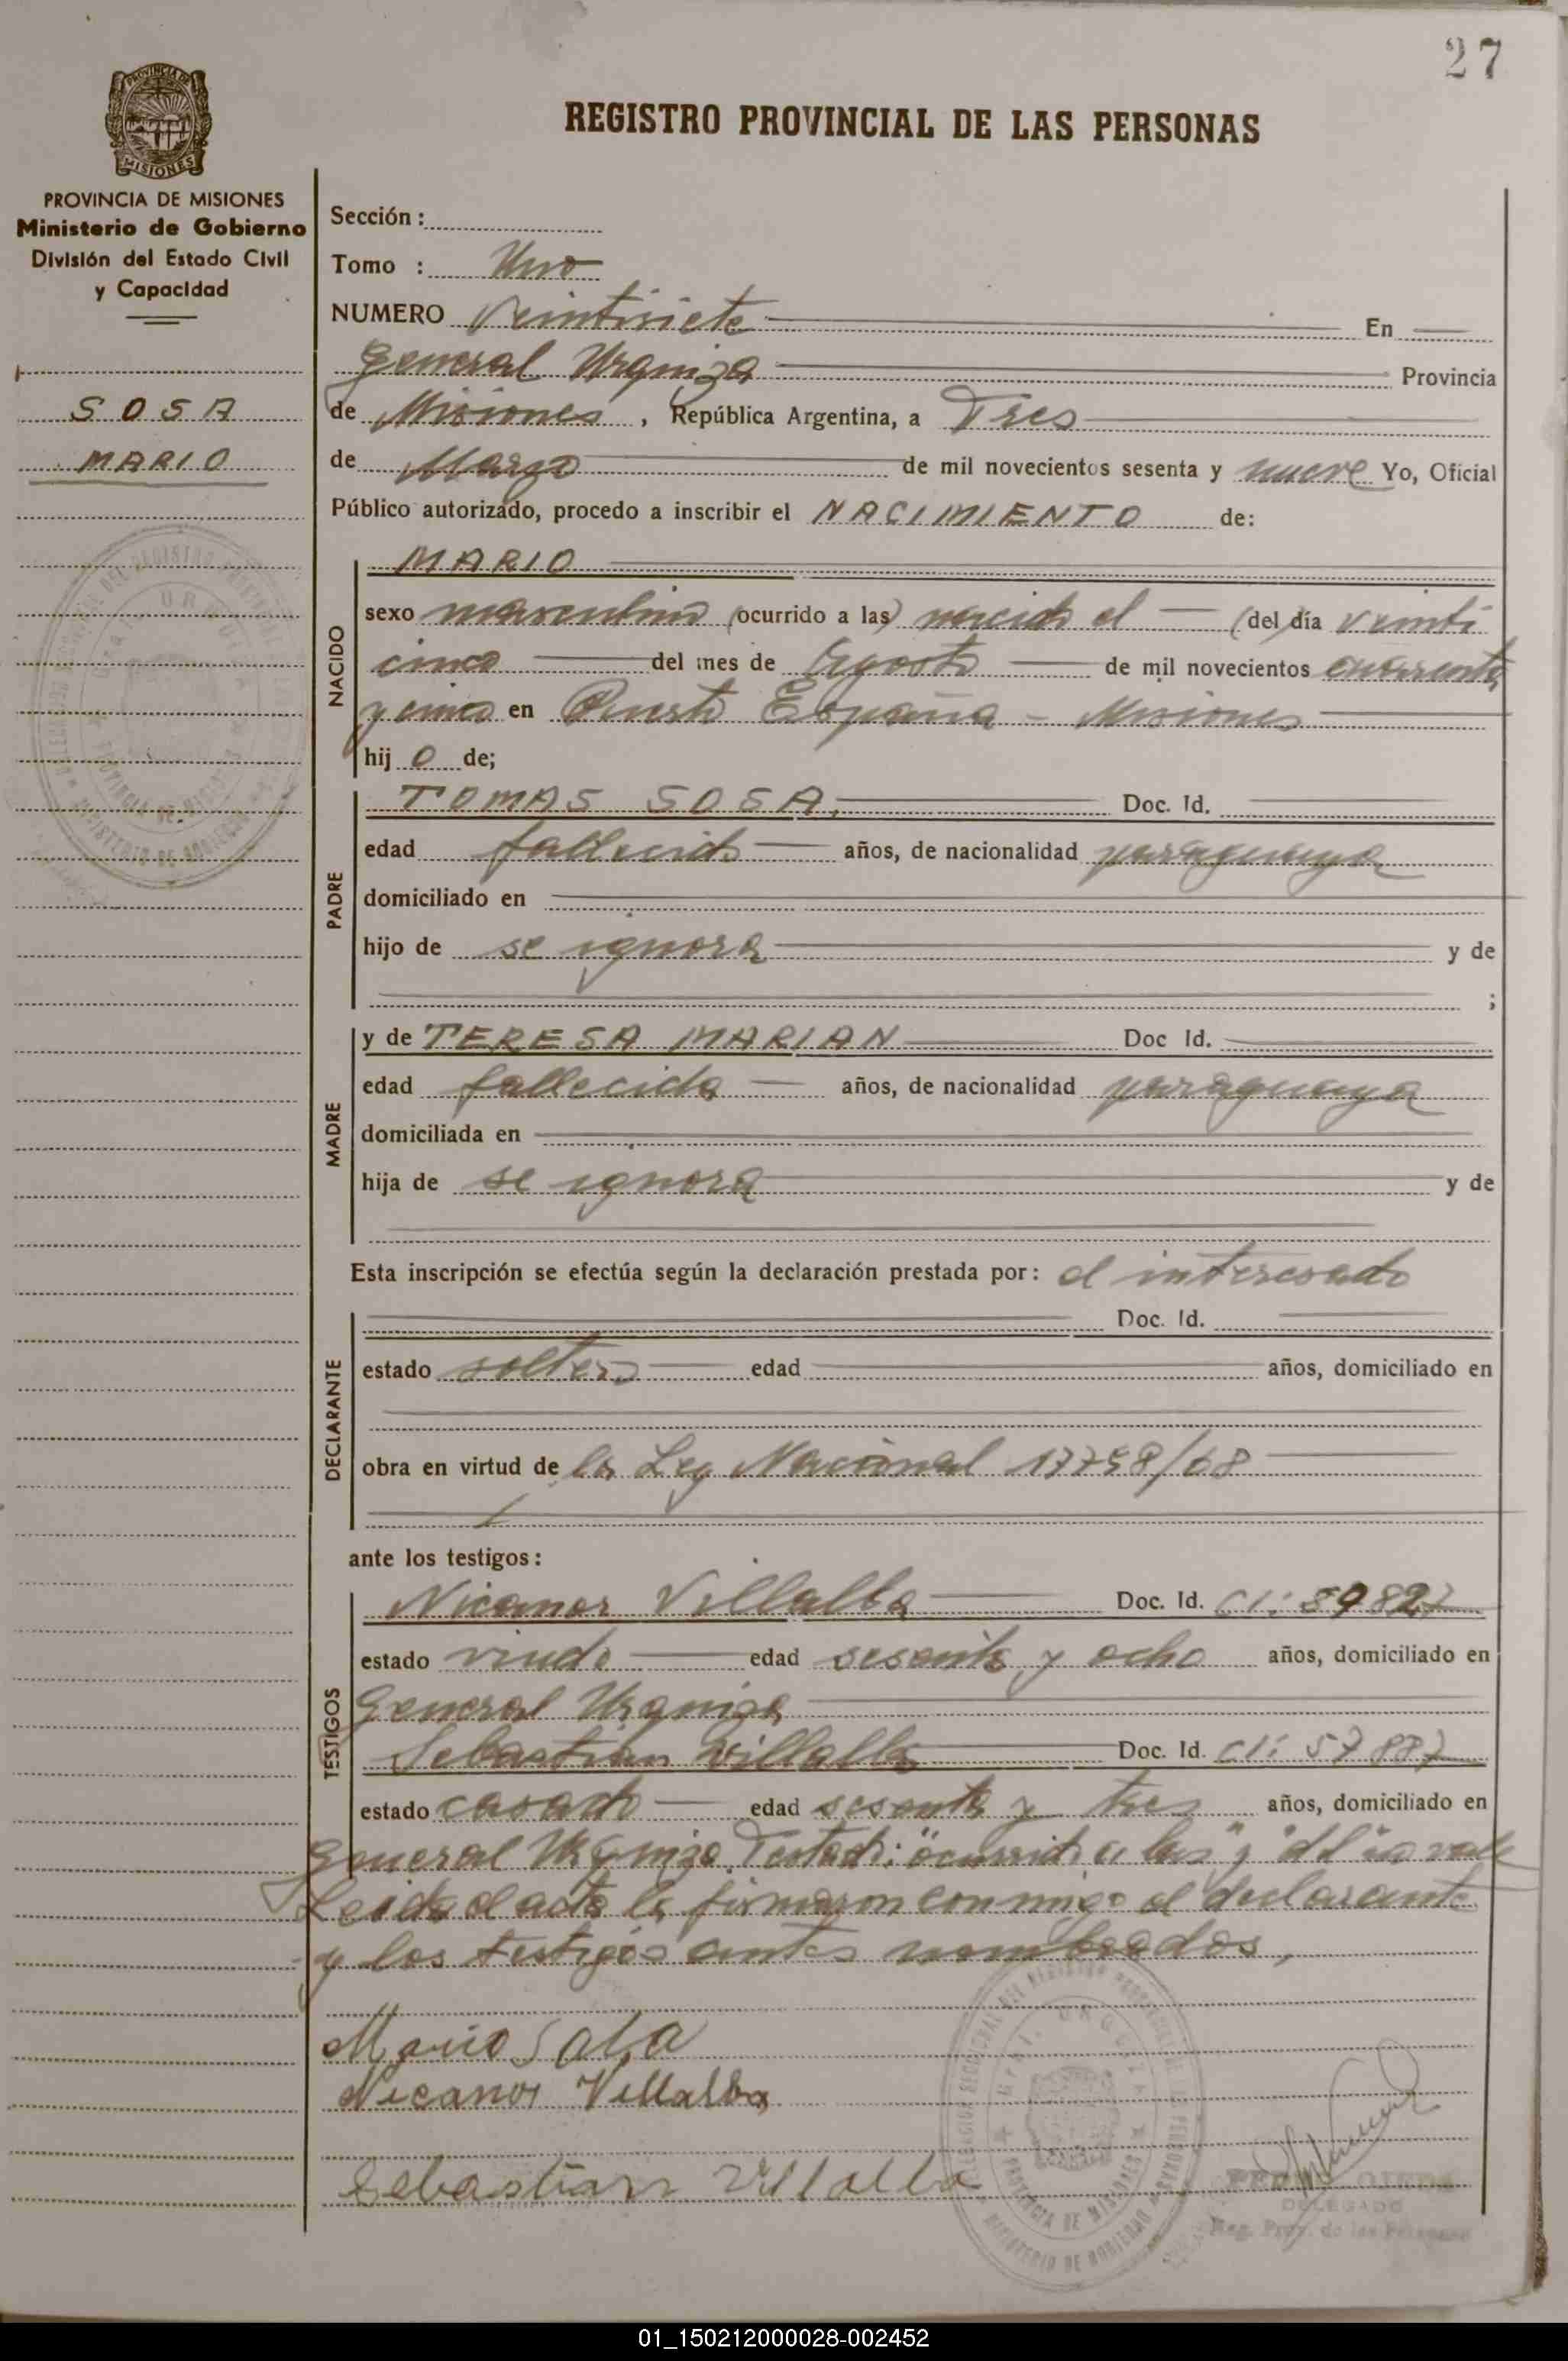 27
REGISTRO PROVINCIAL DE LAS PERSONAS
MISIONES
PROVINCIA DE MISIONES
Ministerio de Gobierno
División del Estado Civil
y Capacidad
SOSA
MARIO
Sección :
Tomo : Uno
NUMERO Veintisiete En
General Urquiza Provincia
de Misiones , República Argentina, a Tres
de Marzo de mil novecientos sesenta y nueve Yo, Oficial
Público autorizado, procedo a inscribir el NACIMIENTO de:
NACIDO
MARIO
sexo masculino (ocurrido a las) nacido el (del) día veinti
cinco del mes de Agosto de mil novecientos cuarenta
y cinco en Puerto España - Misiones
hij o de;
PADRE
TOMAS SOSA, Doc. Id.
edad fallecido años, de nacionalidad paraguaya
domiciliado en
hijo de se ignora y de
;
MADRE
y de TERESA MARIAN Doc Id.
edad fallecida años, de nacionalidad paraguaya
domiciliada en
hija de se ignora y de
Esta inscripción se efectúa según la declaración prestada por: el interesado
DECLARANTE
Doc. Id.
estado soltero edad años, domiciliado en
obra en virtud de la Ley Nacional 17798/68
ante los testigos:
TESTIGOS
Nicanor Villalba Doc. Id. CI: 59827
estado viudo edad sesenta y ocho años, domiciliado en
General Urquiza
Sebastian Villalba Doc. Id. CI: 57887
estado casado edad sesenta y tres años, domiciliado en
General Urquiza. Testado: "ocurrido a las" y "del" no vale
Leida el acta la firmaron conmigo el declarante
y los testigos antes nombrados,
Mario Sosa
Nicanor Villalba
Sebastian Villalba
PEDRO OJEDA
DELEGADO
Reg. Prov. de las Personas
01_150212000028-002452